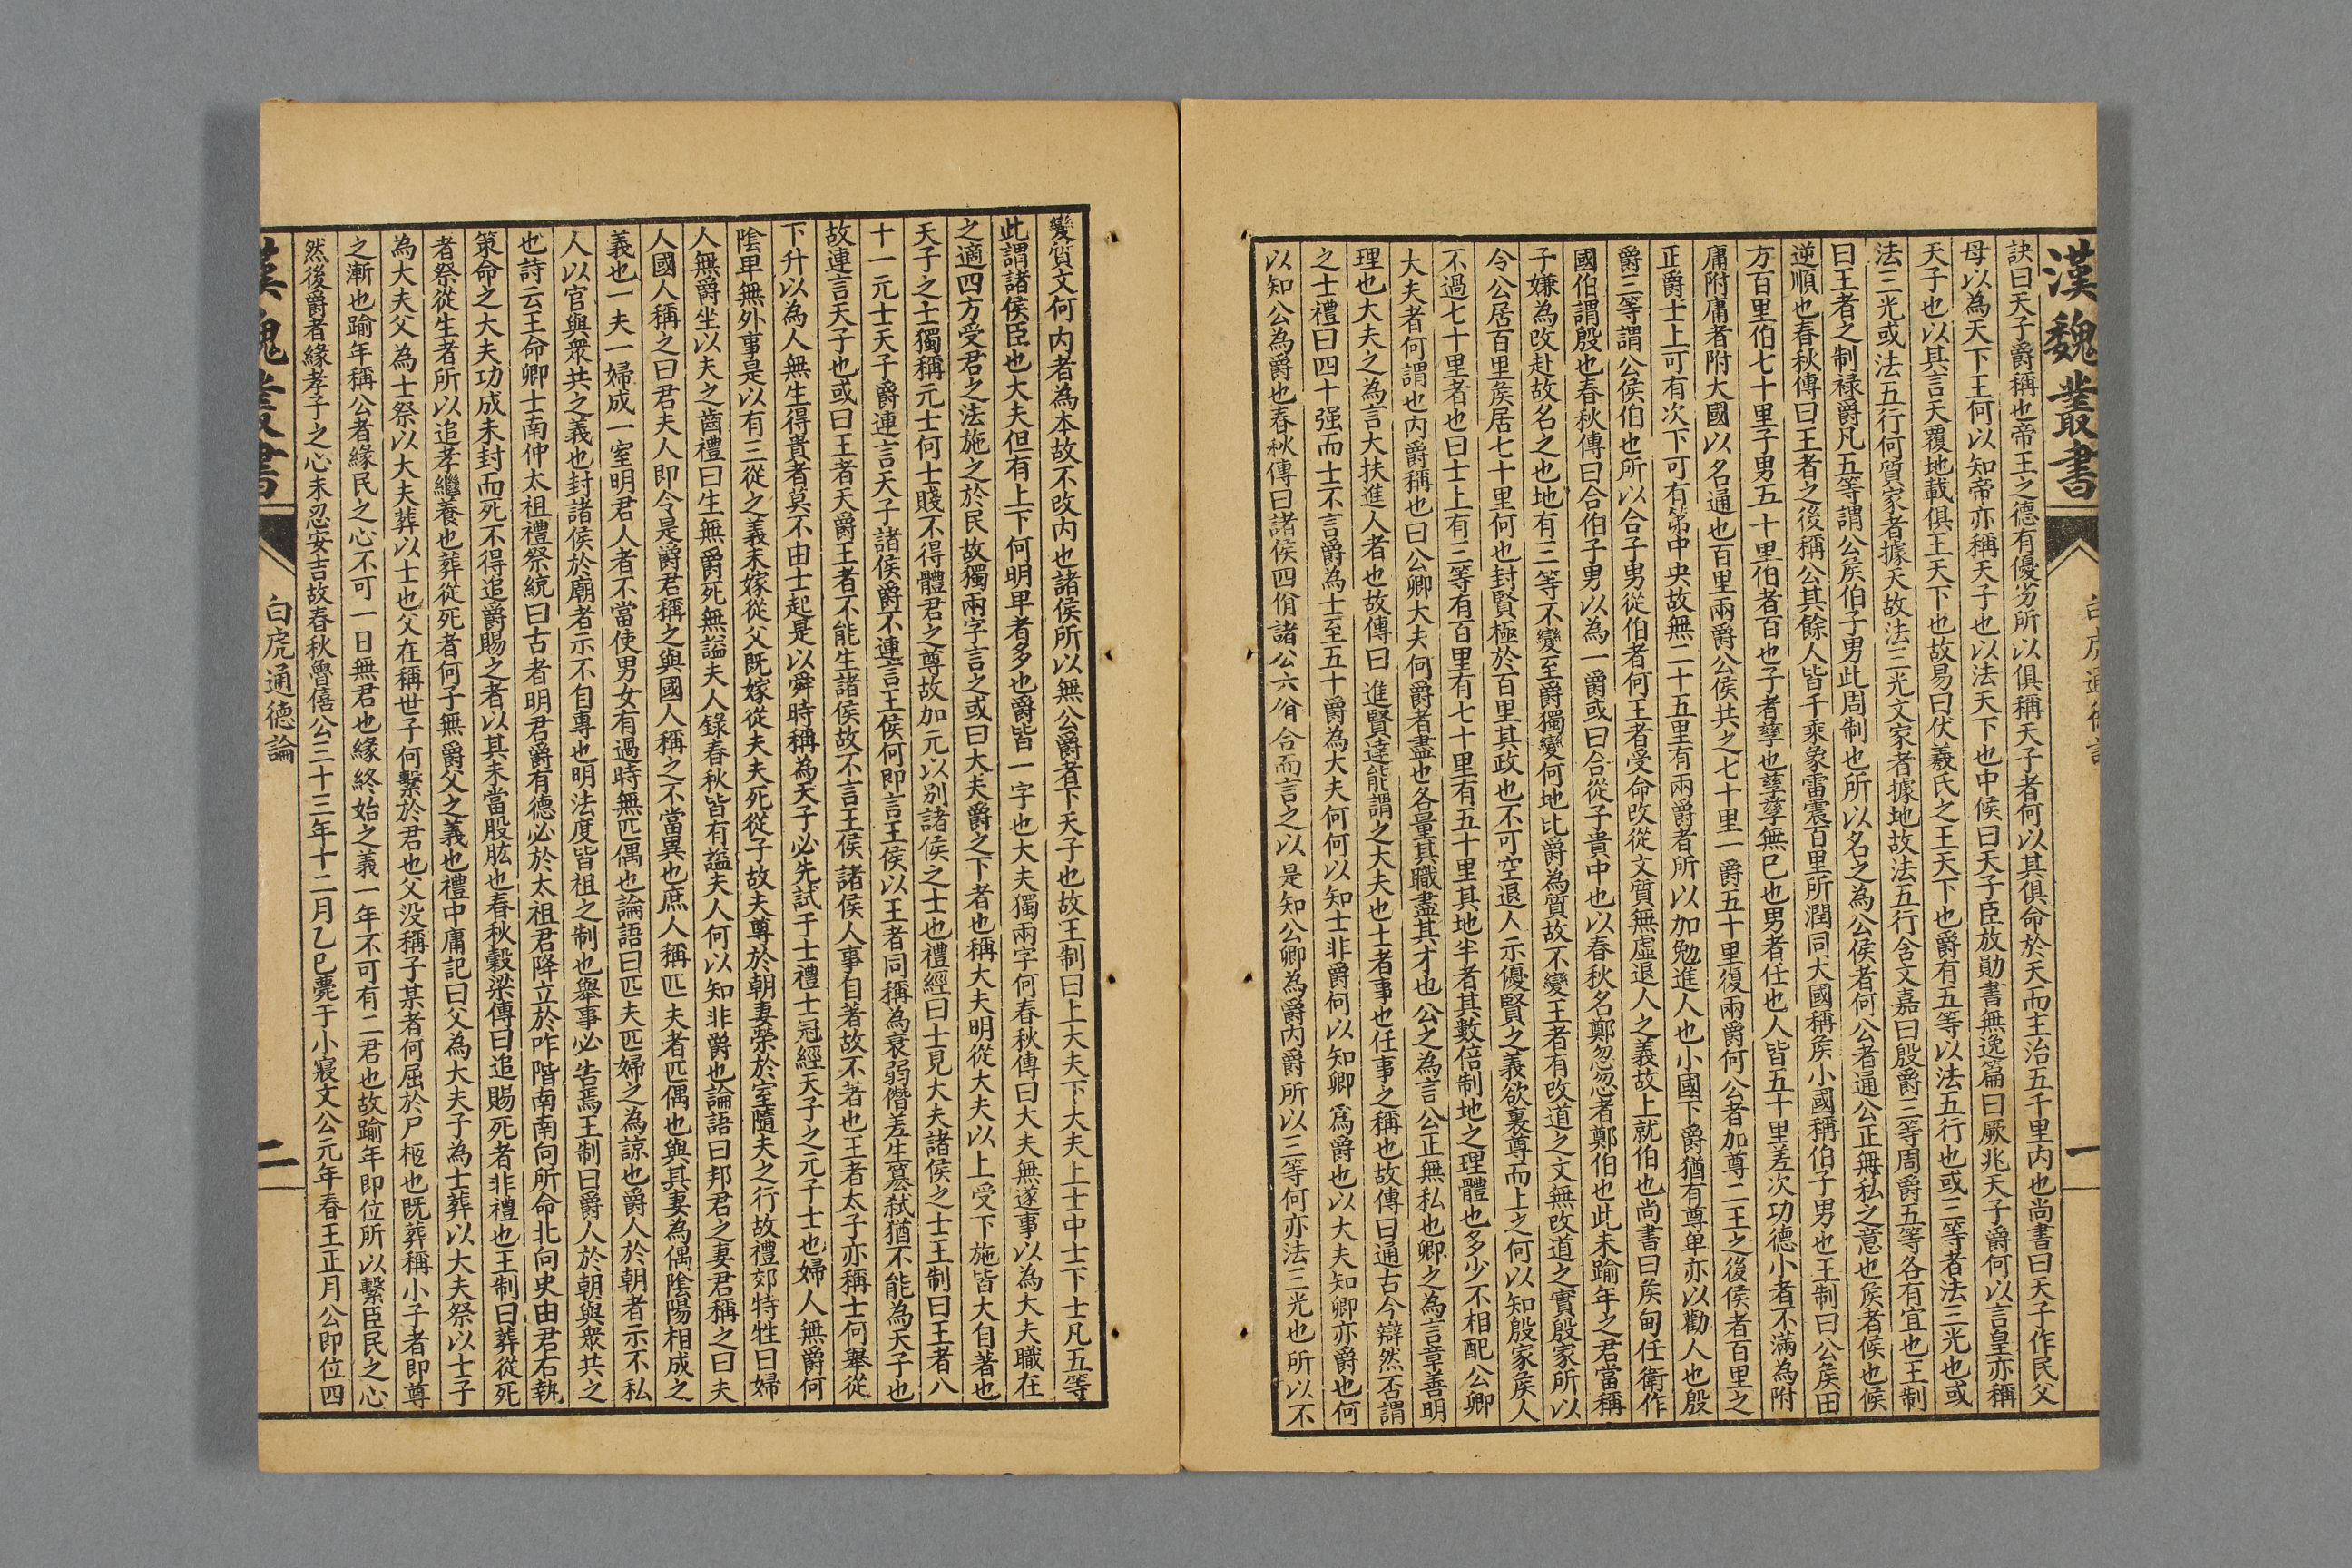 漢魏叢書
白虎通德論
一
訣曰天子爵稱也帝王之德有優劣所以俱稱天子者何以其俱命於天而主治五千里内也尚書曰天子作民父
母以為天下王何以知帝亦稱天子也以法天下也中候曰天子臣放勛書無逸篇曰厥兆天子爵何以言皇亦稱
天子也以其言天覆地載俱王天下也故易曰伏羲氏之王天下也爵有五等以法五行也或三等者法三光也或
法三光或法五行何質家者據天故法三光文家者據地故法五行含文嘉曰殷爵三等周爵五等各有宜也王制
曰王者之制禄爵凡五等謂公矦伯子男此周制也所以名之為公侯者何公者通公正無私之意也矦者候也候
逆順也春秋傳曰王者之後稱公其餘人皆千乘象雷震百里所潤同大國稱矦小國稱伯子男也王制曰公矦田
方百里伯七十里子男五十里伯者百也子者孳也孳孳無已也男者任也人皆五十里差次功德小者不滿為附
庸附庸者附大國以名通也百里兩爵公侯共之七十里一爵五十里復兩爵何公者加尊二王之後侯者百里之
正爵士上可有次下可有第中央故無二十五里有兩爵者所以加勉進人也小國下爵猶有尊卑亦以勸人也殷
爵三等謂公侯伯也所以合子男從伯者何王者受命改從文質無虛退人之義故上就伯也尚書曰矦甸任衛作
國伯謂殷也春秋傳曰合伯子男以為一爵或曰合從子貴中也以春秋名鄭忽忽者鄭伯也此未踰年之君當稱
子嫌為改赴故名之也地有三等不變至爵獨變何地比爵為質故不變王者有改道之文無改道之實殷家所以
令公居百里矦居七十里何也封賢極於百里其政也不可空退人示優賢之義欲裏尊而上之何以知殷家矦人
不過七十里者也曰士上有三等有百里有七十里有五十里其地半者其數倍制地之理體也多少不相配公卿
大夫者何謂也内爵稱也曰公卿大夫何爵者盡也各量其職盡其才也公之為言公正無私也卿之為言章善明
理也大夫之為言大扶進人者也故傳曰進賢達能謂之大夫也士者事也任事之稱也故傳曰通古今辯然否謂
之士禮曰四十强而士不言爵為士至五十爵為大夫何何以知士非爵何以知卿爲爵也以大夫知卿亦爵也何
以知公為爵也春秋傳曰諸侯四佾諸公六佾合而言之以是知公卿為爵内爵所以三等何亦法三光也所以不
變質文何内者為本故不改内也諸侯所以無公爵者下天子也故王制曰上大夫下大夫上士中士下士凡五等
此謂諸侯臣也大夫但有上下何明卑者多也爵皆一字也大夫獨兩字何春秋傳曰大夫無遂事以為大夫職在
之適四方受君之法施之於民故獨兩字言之或曰大夫爵之下者也稱大夫明從大夫以上受下施皆大自著也
天子之士獨稱元士何士賤不得體君之尊故加元以别諸侯之士也禮經曰士見大夫諸侯之士王制曰王者八
十一元士天子爵連言天子諸侯爵不連言王侯何即言王侯以王者同稱為衰弱僭差生簒弑猶不能為天子也
故連言天子也或曰王者天爵王者不能生諸侯故不言王侯諸侯人事自著故不著也王者太子亦稱士何舉從
下升以為人無生得貴者莫不由士起是以舜時稱為天子必先試于士禮士冠經天子之元子士也婦人無爵何
陰卑無外事是以有三從之義未嫁從父既嫁從夫夫死從子故夫尊於朝妻榮於室隨夫之行故禮郊特牲曰婦
人無爵坐以夫之齒禮曰生無爵死無謚夫人錄春秋皆有謚夫人何以知非爵也論語曰邦君之妻君稱之曰夫
人國人稱之曰君夫人即令是爵君稱之與國人稱之不當異也庶人稱匹夫者匹偶也與其妻為偶陰陽相成之
義也一夫一婦成一室明君人者不當使男女有過時無匹偶也論語曰匹夫匹婦之為諒也爵人於朝者示不私
人以官與衆共之義也封諸侯於廟者示不自專也明法度皆祖之制也舉事必告焉王制曰爵人於朝與衆共之
也詩云王命卿士南仲太祖禮祭統曰古者明君爵有德必於太祖君降立於阼階南南向所命北向史由君右執
策命之大夫功成未封而死不得追爵賜之者以其未當股肱也春秋穀梁傳曰追賜死者非禮也王制曰葬從死
者祭從生者所以追孝繼養也葬從死者何子無爵父之義也禮中庸記曰父為大夫子為士葬以大夫祭以士子
為大夫父為士祭以大夫葬以士也父在稱世子何繫於君也父没稱子某者何屈於尸柩也既葬稱小子者即尊
之漸也踰年稱公者緣民之心不可一日無君也緣終始之義一年不可有二君也故踰年即位所以繫臣民之心
然後爵者緣孝子之心未忍安吉故春秋魯僖公三十三年十二月乙巳薨于小寢文公元年春王正月公即位四
漢魏叢書
白虎通德論
二